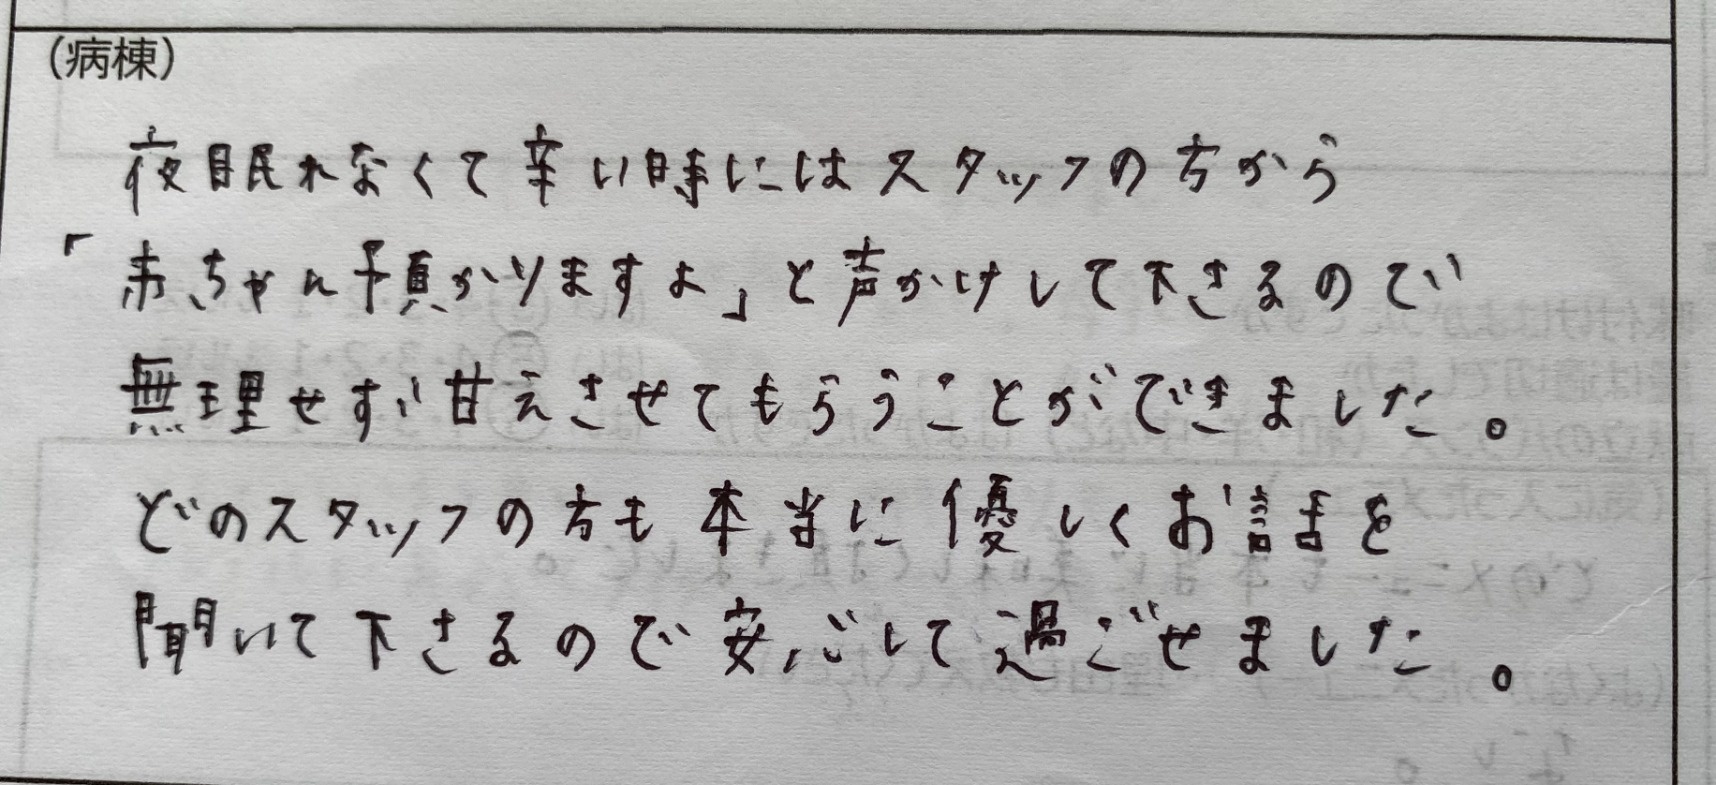 (病棟)
夜眠れなくて辛い時にはスタッフの方から
「赤ちゃん預かりますよ」と声かけして下さるので
無理せず甘えさせてもらうことができました。
どのスタッフの方も本当に優しくお話を
聞いて下さるので安心して過ごせました。